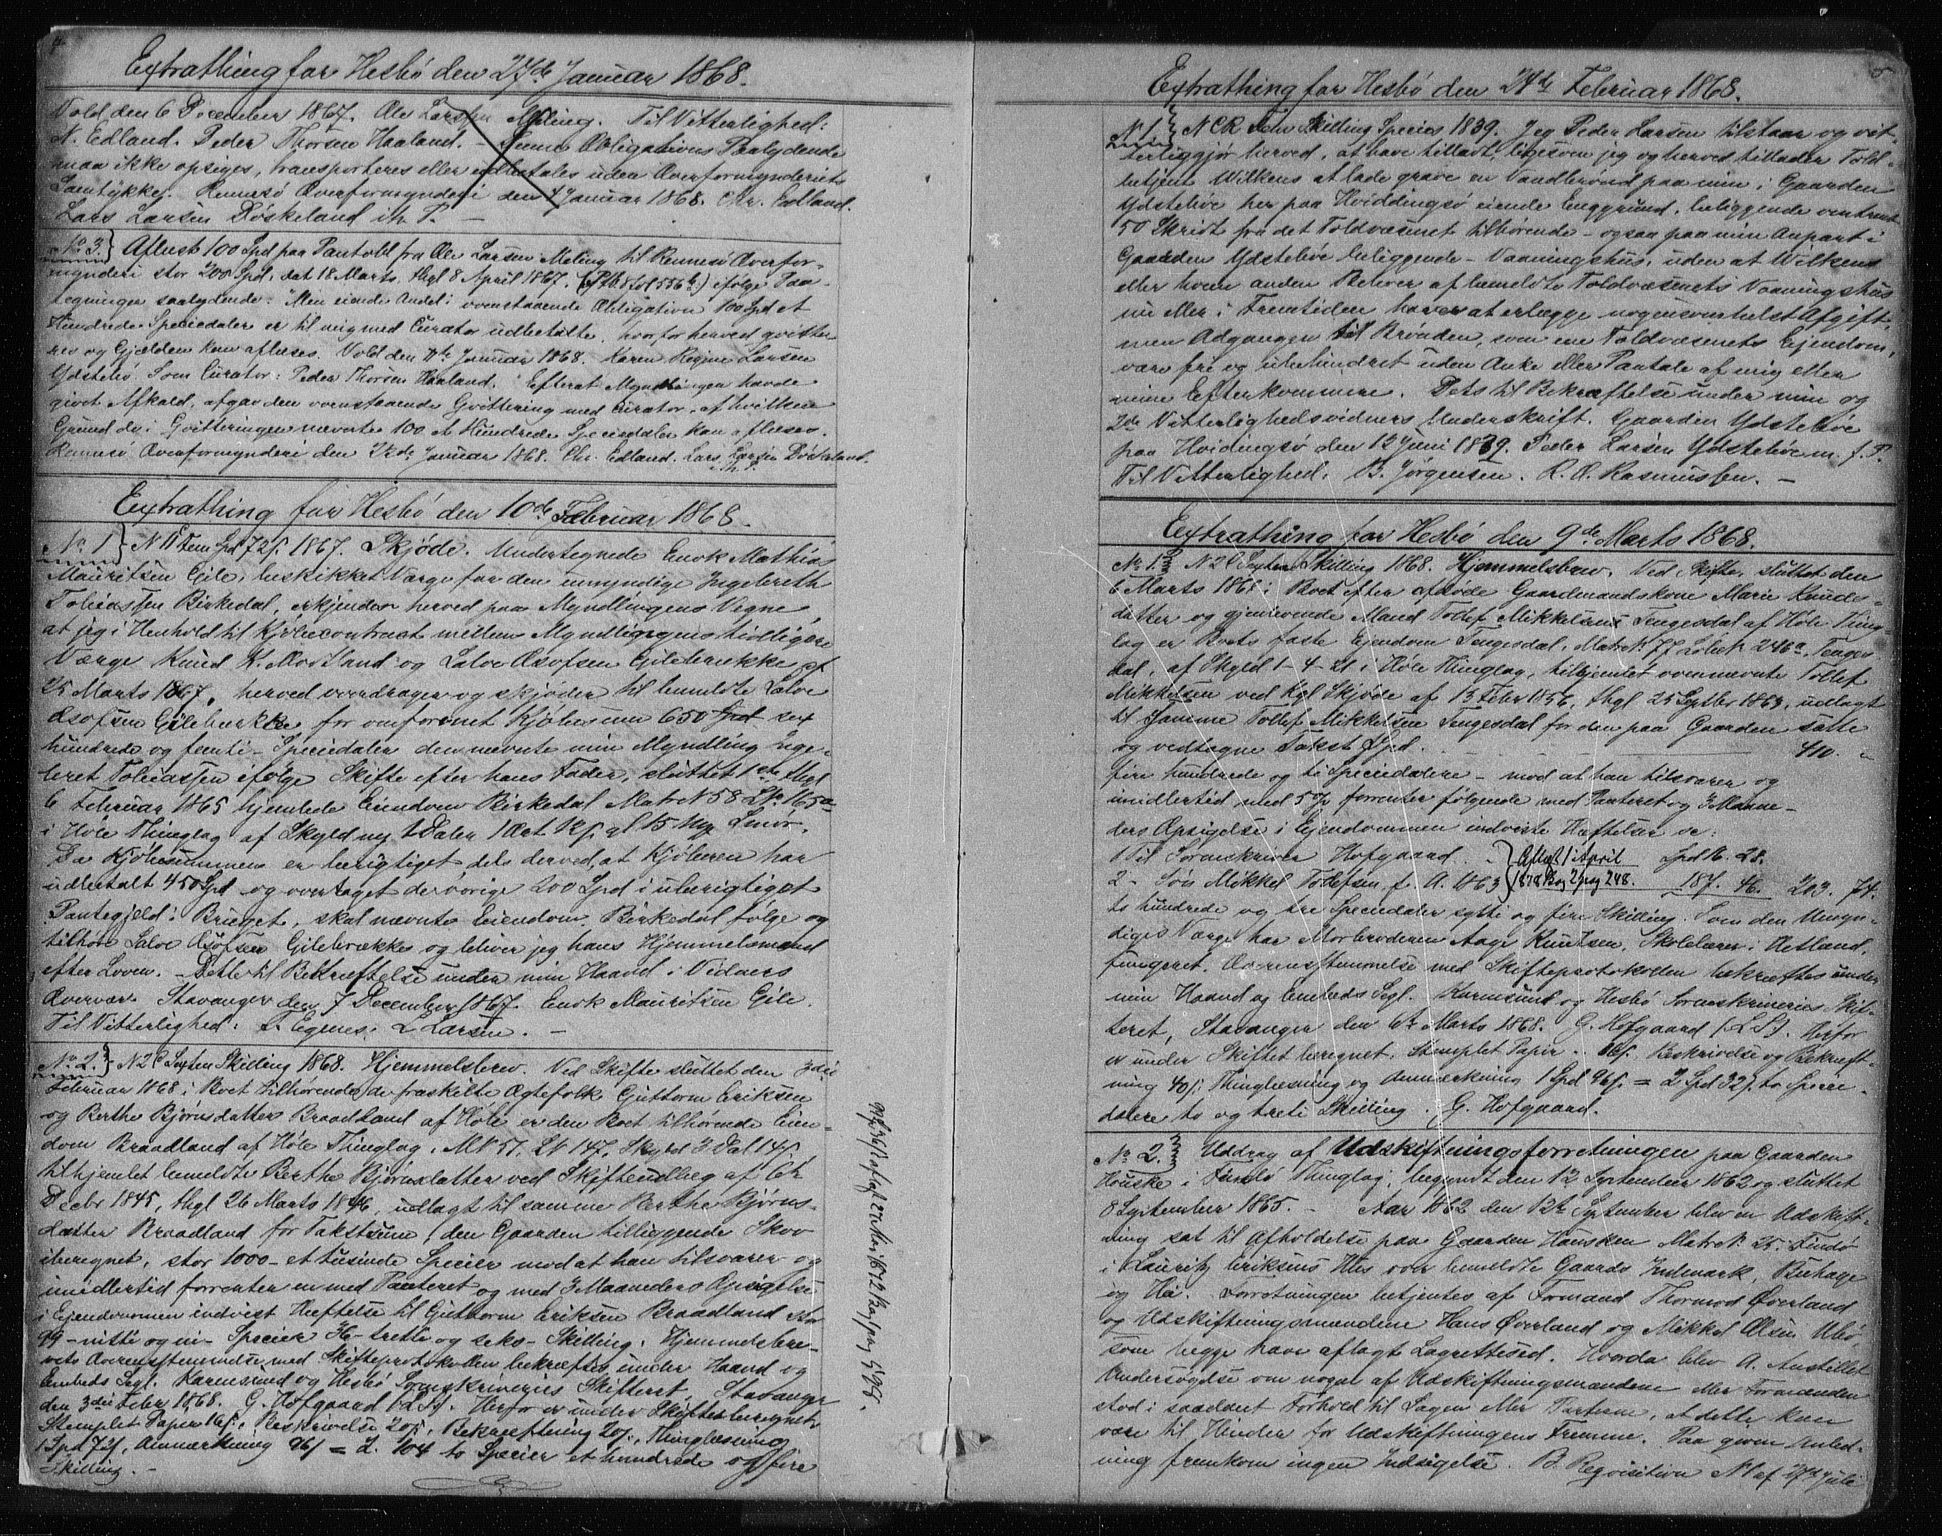 4
Extrathing for Hesbö den 27de Januar 1868.
Vold den 6 December 1867. Ole Larsen Meling. Til Vitterlighed:
N. Edland. Peder Thorsen Haaland. – Denne Obligations Paalydende
maa ikke opsiges, transporteres eller udbetales uden Overformynderiets
Samtykke. Rennesö Overformynderi den 4 Januar 1868. Chr. Edland.
Lars Larsen Döskeland m. P. –
No 3 } Aflest 100 Spd paa Pantobl. fra Ole Larsen Meling til Rennesö Overfor-
mynderi stor 200 Spd, dat 18 Marts, thgl 8 April 1867. (Ptb. 8 fol 556b) ifölge Paa-
tegninger saalydende: "Min eiende Andel i ovenstaaende Obligation 100 Spd et
Hundrede Speciedaler er til mig med Curator udbetalte, hvorfor herved qvitte-
res og Gjælden kan aflæses. Vold den Januar 1868. Karen Regine Larsen
Ydstebö. Som Curator: Peder Thorsen Haaland. Efterat Myndlingen havde
givet Afkald, afgav den ovenstaaende Qvittering med Curator, af hvilken
Grund de i Qvitteringen nævnte 100 et Hundrede Speciedaler kan aflæses.
Rennesö Overformynderi den Januar 1868. Chr. Edland. Lars Larsen Döskeland.
m. P.
Extrathing for Hesbö den 10de Februar 1868.
No 1 } N 11 Fem Spd 72 s. 1867. Skjöde. Undertegnede Enok Mathias
Mauritsen Eile, beskikket Værge for den umyndige Ingebreth
Tobiassen Birkedal, erkjender herved paa Myndlingens Vegne,
at jeg i Henhold til Kjöbecontract mellem Myndlingens tidligere
Værge Knud K. Oortland og Salve Osofsen Gilebrække af
25 Marts 1867, herved overdrager og skjöder til bemeldte Salve
Osofsen Gilebrække for omforenet Kjöbesum 650 Spd sex
hundrede og femti – Speciedaler den nævnte min Myndling Inge-
bret Tobiassen ifölge Skifte efter hans Fader, sluttet 1ste thgl
6 Februar 1865 hjemlede Eiendom Birkedal Matr N 58 LN 165a
i Höle Thinglag af Skyld ny 1 Daler 1 Ort 1 s. gl 15 Mrk Smör.
Da Kjöbesummen er berigtiget dels derved, at Kjöberen har
udbetalt 450 Spd og overtaget de övrige 200 Spd i uberigtiget
Pantegjeld i Bruget, skal nævnte Eiendom Birkedal fölge og
tilhöre Salve Osofsen Gilebrække og bliver jeg hans Hjemmelsmand
efter Loven. – Dette til Bekræftelse under min Haand i Vidners
Overvær. Stavanger den 7 December 1867. Enok Mauritsen Eile.
Til Vitterlighed: T. Egenes: L Larsen. –
No 2. } N 2 C Syvten Skilling 1868. Hjemmelsbrev. Ved Skifte sluttet den 3die
Februar 1868 i Boet tilhörende de fraskilte Ægtefolk Guttorm Eriksen
og Berthe Björnsdatter Braadland af Höle er den Boet tilhörende Eien-
dom Braadland af Höle Thinglag, MN 57, LN 147, Skyld 3 Dal 14 s.
tilhjemlet bemeldte Berthe Björnsdatter ved Skifteudlæg af 6te
Decbr 1845, thgl 26 Marts 1846, udlagt til samme Berthe Björns-
datter Braadland for Takstsum, den Gaarden tilliggende Skov
iberegnet, stor 1000 – et tusinde Specier mod at hun tilsvarer og
imidlertid forrenter en med Panteret og med 3 Maaneders Opsigelse
i Ejendommen indvist Hæftelse til Guttorm Eriksen Braadland stor
99 – nitti og ni – Specier 36 – trette og seks – Skilling. Hjemmelsbre-
vets Overensstemmelse med Skifteprotokollen bekræftes under Haand og
Embeds Segl. Karmsund og Hesbö Sorenskriveries Skifteret, Stavanger
den 3die Febr 1868. G. Hofgaard (L.S.). Herfor er under Skiftet beregnet
Stemplet Papir 16 s., Beskrivelse 20 s., Bekræftning 20 s., Thinglæsning
1 Spd 72 s, Anmærkning 96 s = 2. 104 to Specier et hundrede og fire
Skilling. –
5
Extrathing for Hesbö den 24de Februar 1868.
N 1. } N CR Skilling Species 1839. Jeg Peder Larsen tilstaar og vit-
terliggjör herved, at have tilladt, ligesom jeg og herved tillader Told-
betjent Wilkens at lade grave en Vandbrönd paa min i Gaarden
Ydsteböe her paa Hviddingsö eiende Enggrund, beliggende omtrent
50 Skridt fra det Toldvæsenet tilhörende – ogsaa paa min Anpart i
Gaarden Ydsteböe beliggende – Vaaningshus, uden at Wilkens
eller hvem anden Beboer af bemeldte Toldvæsenets Vaaningshus
nu eller i Fremtiden haver at erlægge nogensomhelst Afgift,
men Adgangen til Brönden, som ene Toldvæsenets Ejendom,
være fri og ubehindret uden Anke eller Paatale af mig eller
mine Efterkommere. Dets til Bekræftelse under min og
2de Vitterlighedsvidners Underskrift. Gaarden Ydsteböe
paa Hvidingsö den 12 Juni 1839. Peder Larsen Ydsteböe m. f. P.
Til Vitterlighed: B. Jorgensen. R. A. Rasmussen. –
Extrathing for Hesbö den 9de Marts 1868.
No 1. } N 2 C Syvten Skilling 1868. Hjemmelsbrev. Ved Skifte, sluttet den
6 Marts 1868 i Boet efter afdöde Gaardmandskone Marie Knuds-
datter og gjenlevende Mand Tollef Mikkelsen Tengesdal af Höle Thing-
lag er Boets faste Ejendom Tengesdal, Matr N 77 Löbe N 246a, Tenges-
dal, af Skyld 1 – 4 – 21 i Höle Thinglag, tilhjemlet ovennævnte Tollef
Mikkelsen ved Kgl Skjöde af 13 Febr 1856, thgl 25 Septbr 1863, udlagt
til samme Tollef Mikkelsen Tengesdal for den paa Gaarden satte
og vedtagne Takst Spd. 410. "
fire hundrede og ti Speciedalere – mod at han tilsvarer og
imidlertid med 5 % forrenter fölgende med Panteret og 3 Maane-
ders Opsigelse i Ejendommen indviste Hæftelser se:
1 Til Sorenskriver Hofgaard. Spd 16. 28.
2 – Sön Mikkel Tollefsen f. A. 1863 } 187. 46. 203. 74.
Aflæst 1 April
1878 Bog 2 pag 248.
to hundrede og tre Speciedaler sytti og fire Skilling. Som den Umyn-
diges Værge har Morbroderen Aage Knutsen, Skolelærer i Hetland,
fungeret. Overensstemmelse med Skifteprotokollen bekræftes under
min Haand og Embeds Segl. Karmsund og Hesbö Sorenskriveries Skif-
teret, Stavanger den 6te Marts 1868. G. Hofgaard (L.S.). Herfor
er under Skiftet beregnet: Stemplet Papir .. 16 s. Beskrivelse og Bekræft-
ning 40 s. Thinglæsning og Anmærkning 1 Spd 96 s. = 2 Spd 32 s. to Specie-
dalere to og treti Skilling. G. Hofgaard.
No 2. } Uddrag af Udskiftningsforretningen paa Gaarden
Houske i Findö Thinglag, begyndt den 12 September 1862 og sluttet
8 September 1865. – Aar 1862 den 12te September blev en Udskift-
ning sat til Afholdelse paa Gaarden Hausken Matr N 25. Findö
i Lauritz Eriksens Hus over bemeldte Gaards Indmark, Buhage
og Hei. Forretningen betjentes af Formand Thormod Överland
og Udskiftningsmændene Hans Överland og Mikkel Olsen Ubö
som begge have aflagte Lagrettesed. Hvorda blev A. Anstillet
Undersögelse om nogen af Udskiftningsmændene eller Formanden
stod i saadant Forhold til Sagen eller Parterne, at dette kan
være til Hinder for Udskiftningens Fremme. Paa given Anled-
ning fremkom ingen Indsigelse. B. Reqvisition N 1 af 27de Juli